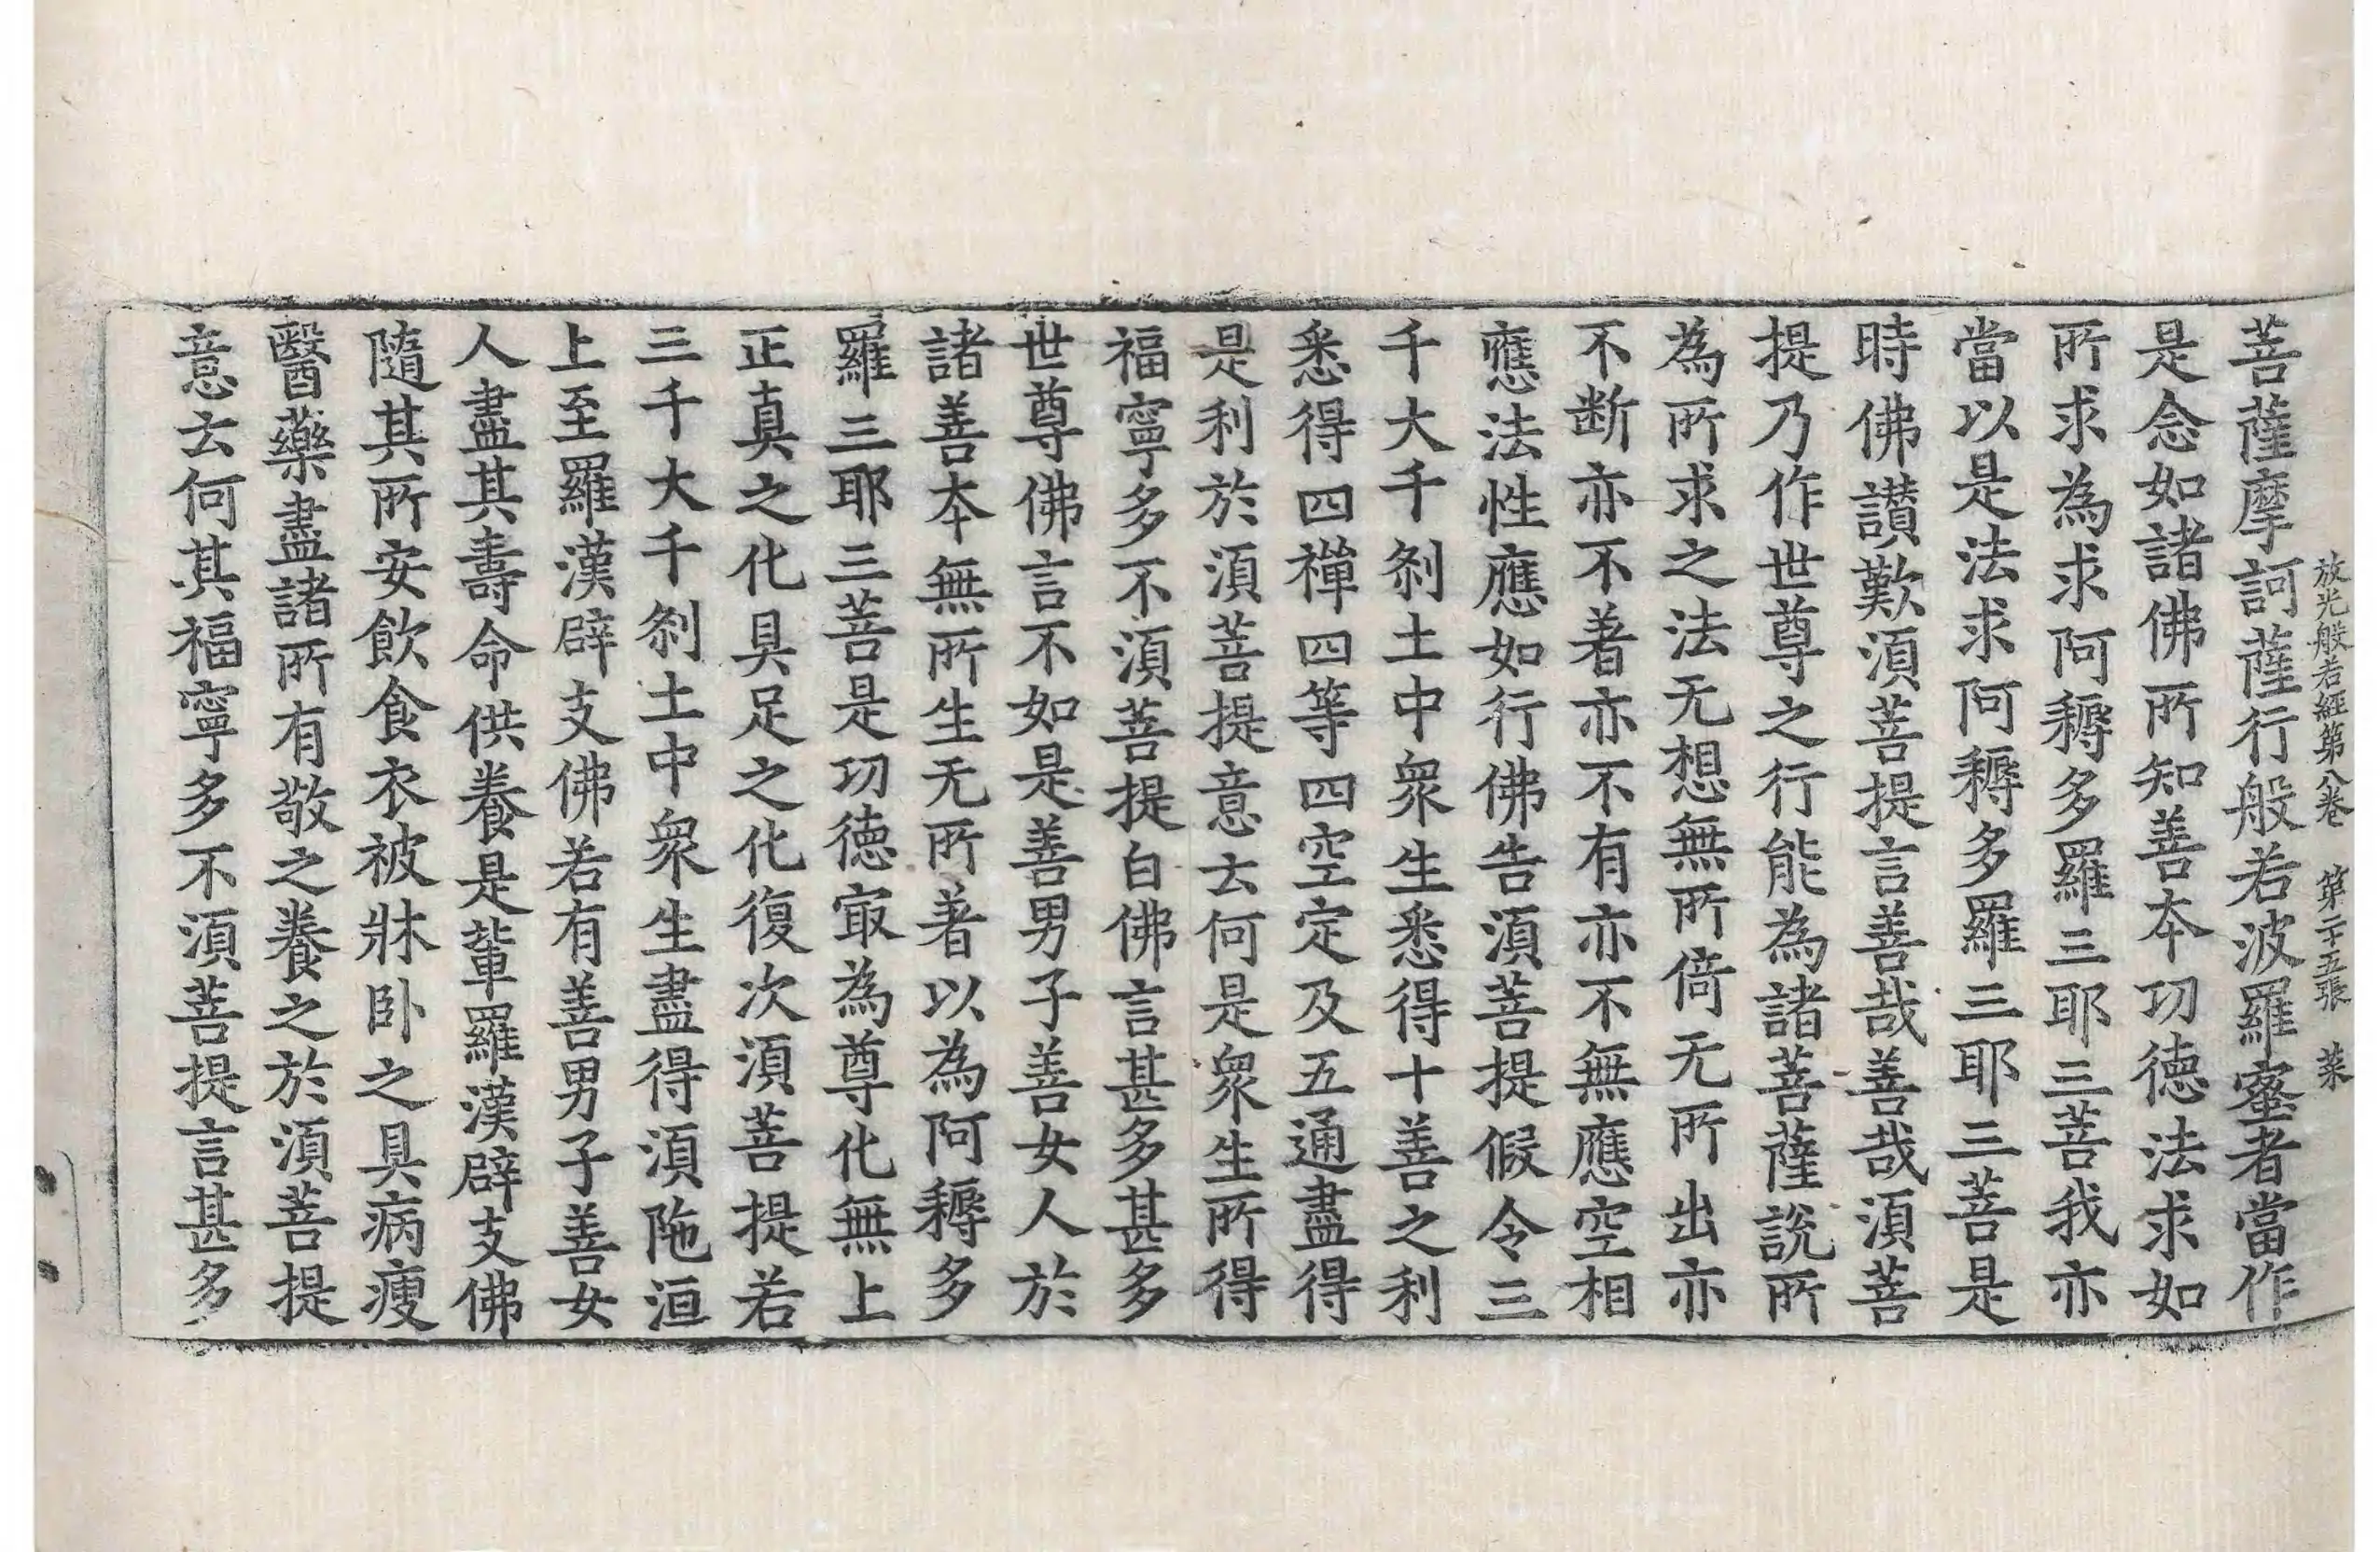 放光般若經第八卷　第二十五張　菜
菩薩摩訶薩行般若波羅蜜者當作
是念如諸佛所知善夲功德法求如
所求為求阿耨多羅三耶三菩我亦
當以是法求阿耨多羅三耶三菩是
時佛讃歎湏菩提言善哉善哉湏菩
提乃作世尊之行能為諸菩薩說所
為所求之法无想無所倚无所出亦
不断亦不著亦不有亦不無應空相
應法性應如行佛告湏菩提假令三
千大千刹土中衆生悉得十善之利
悉得四禪四等四空定及五通盡得
是利於湏菩提意云何是衆生所得
福寧多不湏菩提白佛言甚多甚多
世尊佛言不如是善男子善女人於
諸善夲無所生无所著以為阿耨多
羅三耶三菩是功德㝡為尊化無上
正真之化具足之化復次湏菩提若
三千大千刹土中衆生盡得湏陁洹
上至羅漢辟支佛若有善男子善女
人盡其壽命供養是輩羅漢辟支佛
隨其所安飲食衣被牀卧之具病瘦
醫藥盡諸所有敬之養之於湏菩提
意云何其福寧多不湏菩提言甚多